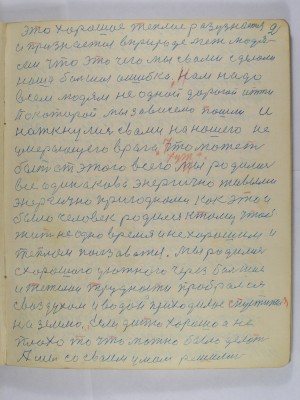 это хорошее теплое раздувается 2
и признается в природе меж людя-
ми что это чего мы с вами сделали
наша большая ошибка. Нам надо
всем людям не одной дорогой итти
по которой мы зависемо пошли. И
наткнулися с вами на нашего не
умераючего врага, что может
хуже
быть от этого всего. Мы родилися
все одинаково энергично живыми
энергично природными как это и
было человек родился к тому чтоб
жить не одно время и не хорошим и
теплом пользоватся. Мы родилися
с хорошего уютного через больное
и тяжелое трудность пробралися
с воздухом и водой приходилось спуститися
на землю. Если дитю хорошо а не
плохо то что можно было делать
А мы со своим умом решили